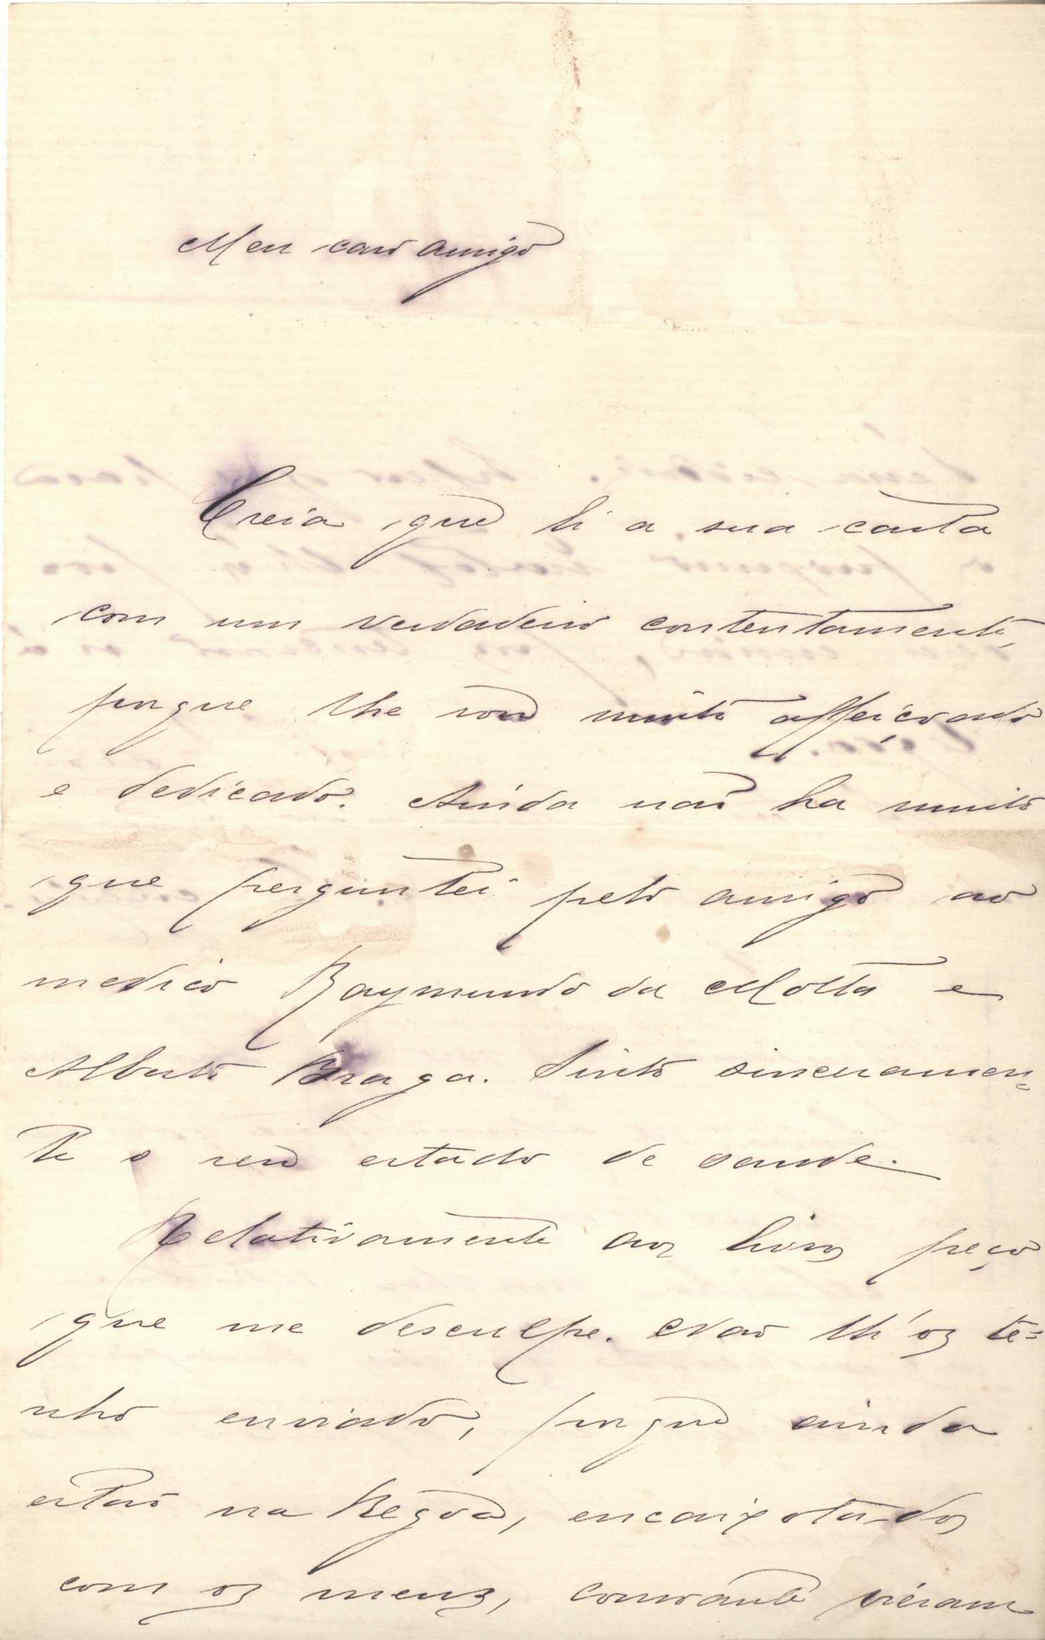 Meu caro amigo
Creia que li a sua carta
com um verdadeiro contentamento,
porque lhe sou muito affeiçoado
e dedicado. Ainda não ha muito
que perguntei pelo amigo ao
medico Raymundo da Motta e
Alberto Braga. Sinto sinceramen=
te o seu estado de saude.
Relativamente aos livros peço
que me desculpe. Não lh'os te=
nho enviado, porque ainda
estão na Regoa, encaixotados
com os meus, consoante vieram